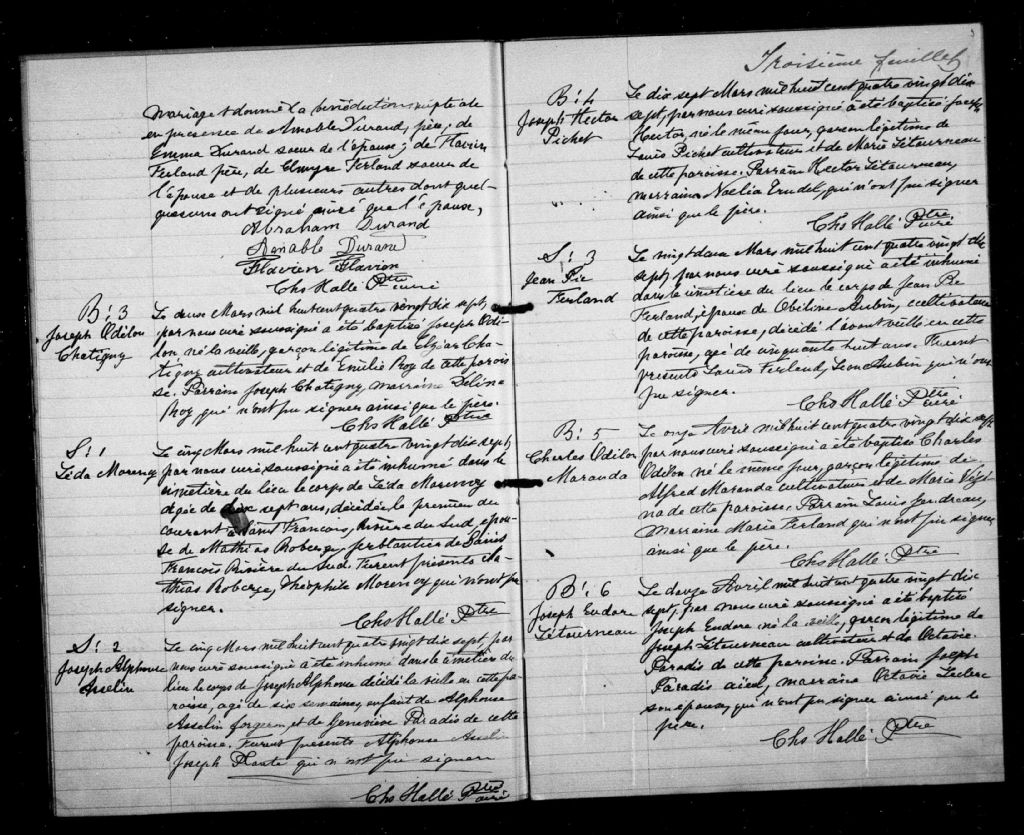 mariage et donné la bénédiction nuptiale
en présence de Amable Durand, père, de
Emma Durand soeur de l'épouse; de Flavien
Ferland père, de Elmyre Ferland soeur de
l'épouse et de plusieurs autres dont quel-
ques uns ont signé ainsi que l'épouse,
Abraham Durand
Amable Durand
Flavien Flavion
Chs Hallé Ptre curé
B: 3
Joseph Odilon
Chatigny
Le deux Mars mil huit cent quatre vingt dix sept,
par nous curé soussigné a été baptisé Joseph Odi-
lon, né la veille, garçon légitime de Elzéar Cha-
tigny cultivateur et de Emilie Roy de cette parois
se. Parrain Joseph Chatigny, marraine Delina
Roy qui n'ont pu signer ainsi que le père.
Chs Hallé Ptre
S: 1
Léda Morency
Le cinq Mars mil huit cent quatre vingt dix sept,
par nous curé soussigné a été inhumé dans le
cimetière du lieu le corps de Léda Morency
agée de sept ans, décédée le premier du
courant à Saint François, Rivière du Sud, épou-
se de Mathias Roberge, ferblantier de Saint
François Rivière du Sud. Furent présents Ma
thias Roberge, Théophile Morency qui n'ont pu
signer.
Chs Hallé Ptre
S: 2
Joseph Alphonse
Asselin
Le cinq Mars mil huit cent quatre vingt dix sept, par
nous curé soussigné a été inhumé dans le cimetière du
lieu le corps de Joseph Alphonse décédé la veille en cette pa-
roisse, agé de six semaines, enfant de Alphonse
Asselin forgeron, et de Geneviève Paradis de cette
paroisse. Furent présents Alphonse Asselin
Joseph Plante qui n'ont pu signer
Chs Hallé Ptre curé
Troisième feuillet
B: 4
Joseph Hector
Pichet
Le dix sept Mars mil huit cent quatre vingt dix
sept, par nous curé soussigné a été baptisé Joseph
Hector, né le même jour, garçon légitime de
Louis Pichet cultivateur et de Marie Létourneau
de cette paroisse. Parrain Hector Létourneau,
marraine Noëlia Trudel, qui n'ont pu signer
ainsi que le père.
Chs Hallé Ptre curé
S: 3
Jean Pie
Ferland
Le vingt deux Mars mil huit cent quatre vingt dix
sept, par nous curé soussigné a été inhumé
dans le cimetière du lieu le corps de Jean Pie
Ferland, épouse de Obéline Aubin, cultivateur
de cette paroisse, décédé l'avant veille en cette
paroisse, agé de cinquante huit ans. Furent
présents Louis Ferland, Léon Aubin qui n'ont
pu signer.
Chs Hallé Ptre curé
B: 5
Charles Odilon
Maranda
Le onze Avril mil huit cent quatre vingt dix sept
par nous curé soussigné a été baptisé Charles
Odilon né le même jour, garçon légitime de
Alfred Maranda cultivateur et de Marie Vézi
na de cette paroisse. Parrain Louis Gendreau,
marraine Marie Ferland qui n'ont pu signer
ainsi que le père.
Chs Hallé Ptre
B: 6
Joseph Eudore
Létourneau
Le douze Avril mil huit cent quatre vingt dix
sept, par nous curé soussigné a été baptisé
Joseph Eudore né la veille, garçon légitime de
Joseph Létourneau cultivateur et de Octavie
Paradis de cette paroisse. Parrain Joseph
Paradis aieul, marraine Octavie Leclerc
son épouse, qui n'ont pu signer ainsi que le
père.
Chs Hallé Ptre